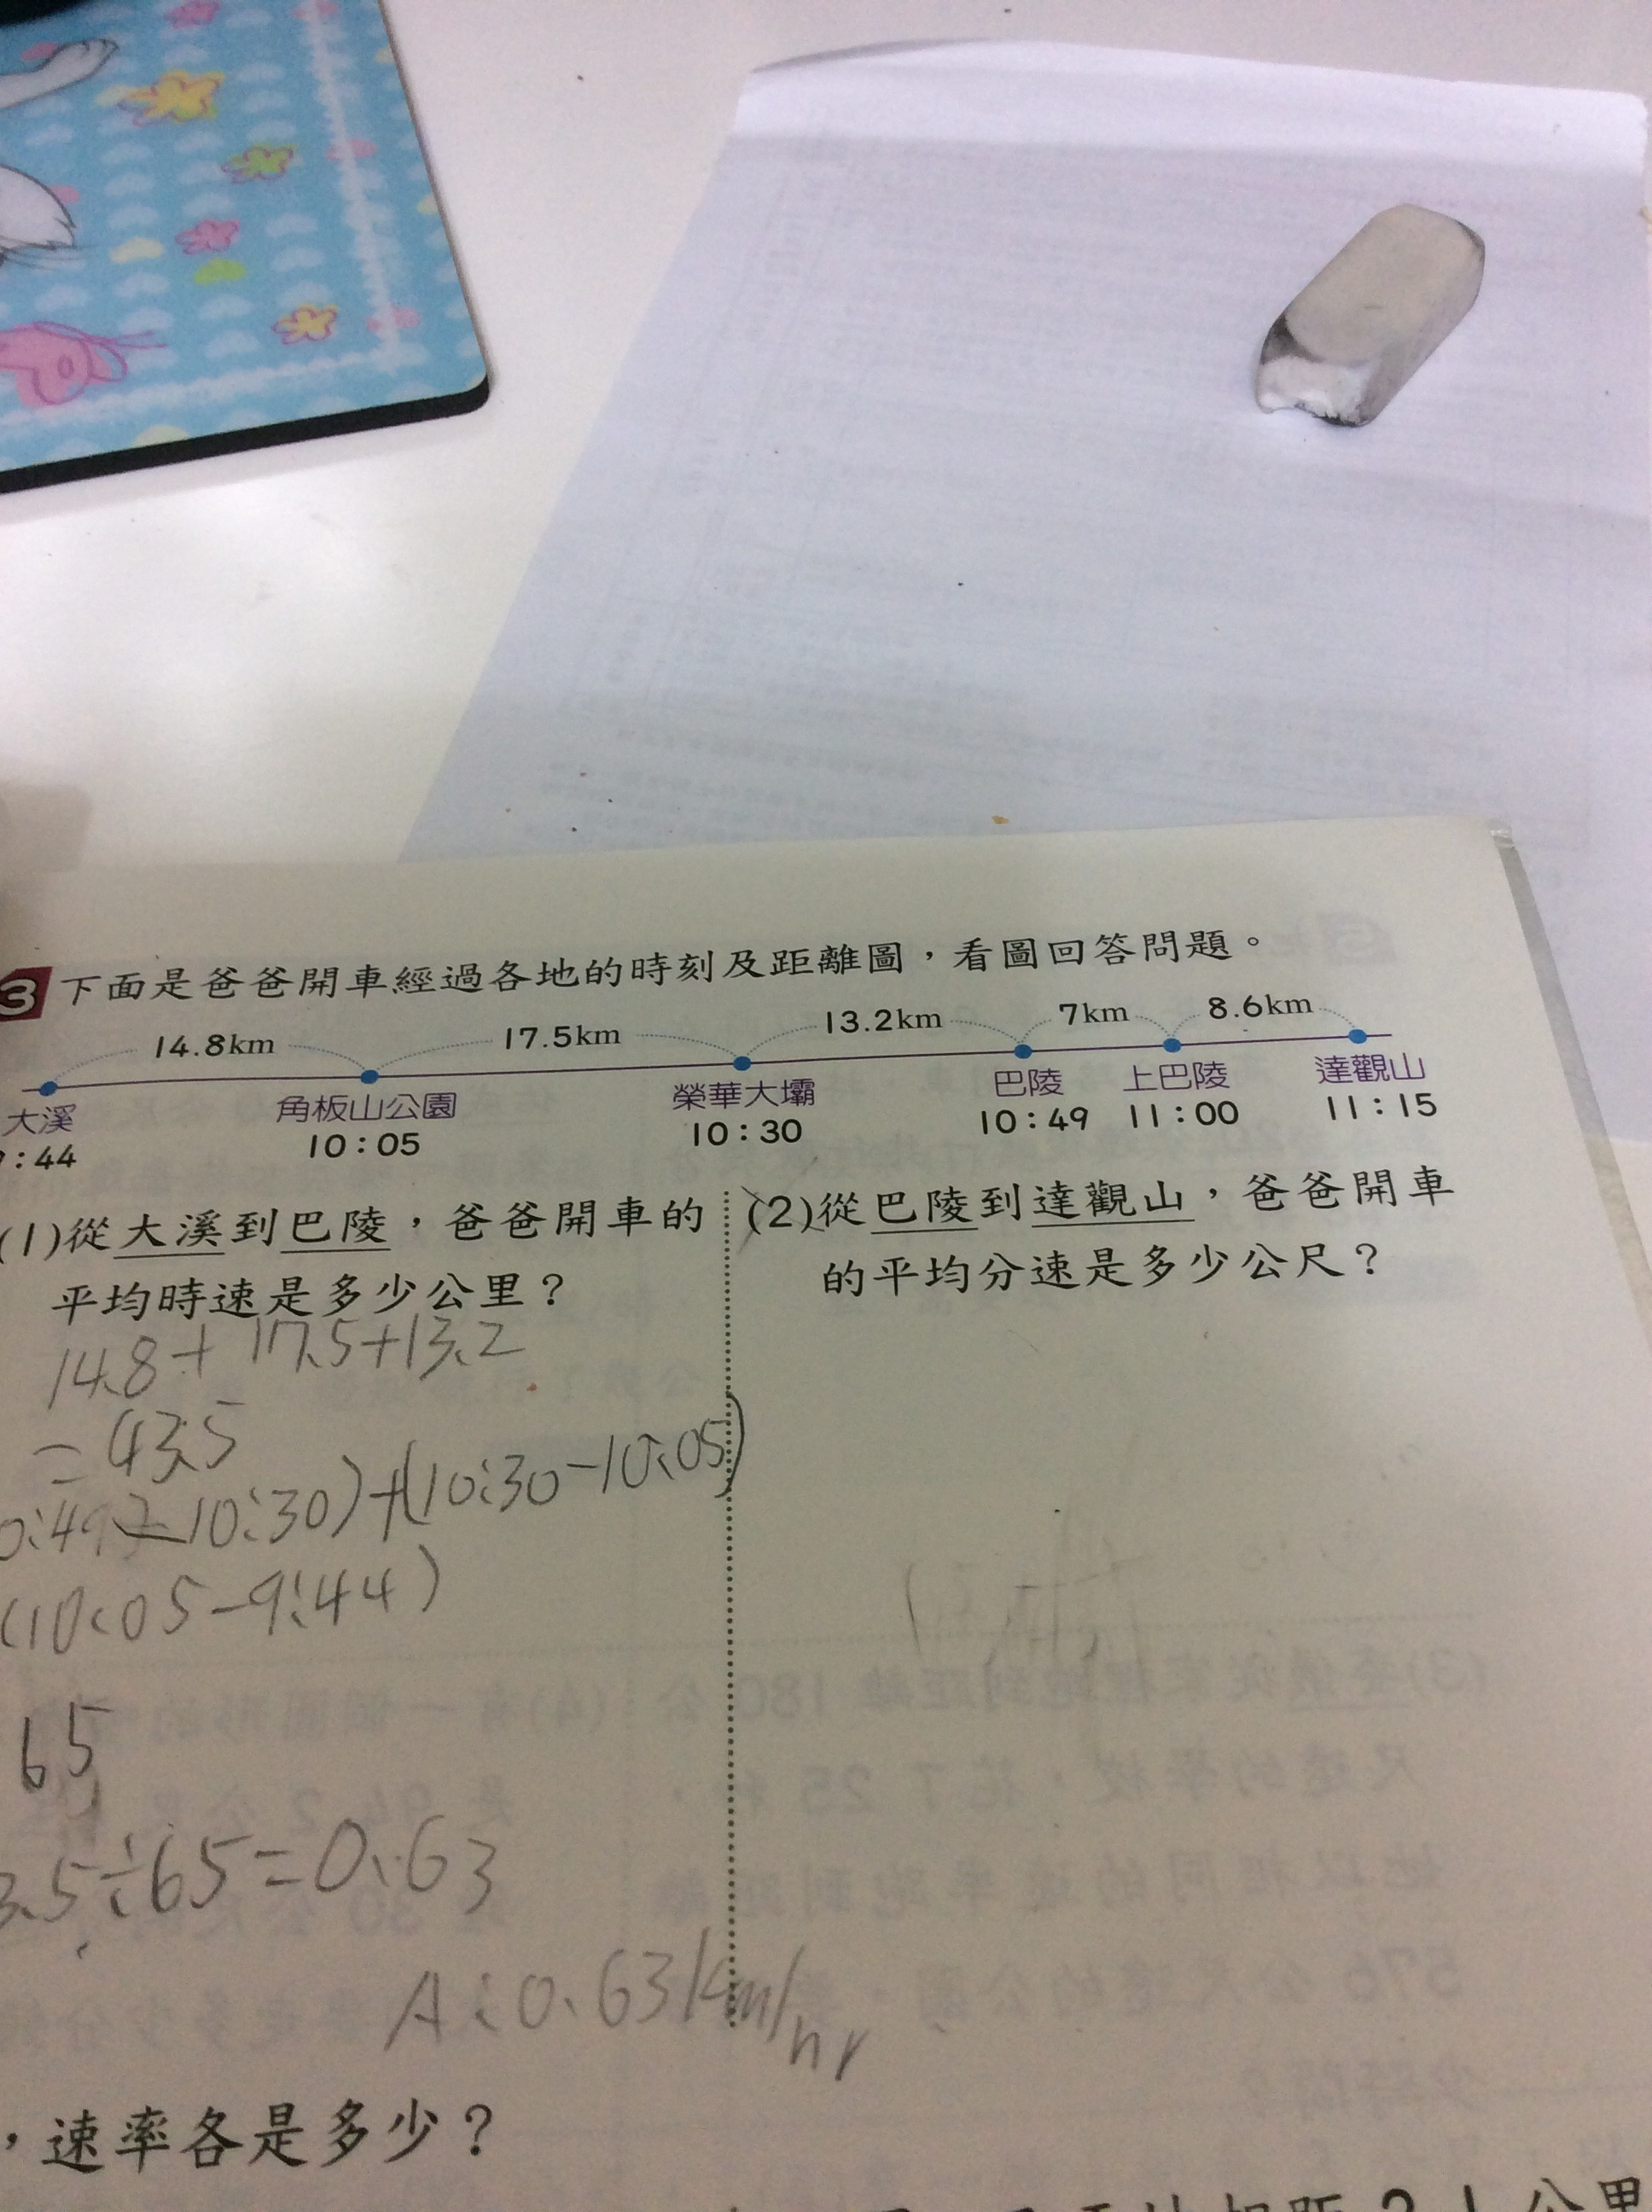 3 下面是爸爸開車經過各地的時刻及距離圖，看圖回答問題。
14.8km 17.5km 13.2km 7km 8.6km
大溪 角板山公園 榮華大壩 巴陵 上巴陵 達觀山
:44 10:05 10:30 10:49 11:00 11:15
(1)從大溪到巴陵，爸爸開車的
平均時速是多少公里？
14.8+17.5+13.2
=43.5
0:49-10:30)+(10:30-10:05)
(10:05-9:44)
65
3.5÷65=0.63
A:0.63km/hr
(2)從巴陵到達觀山，爸爸開車
的平均分速是多少公尺？
，速率各是多少？